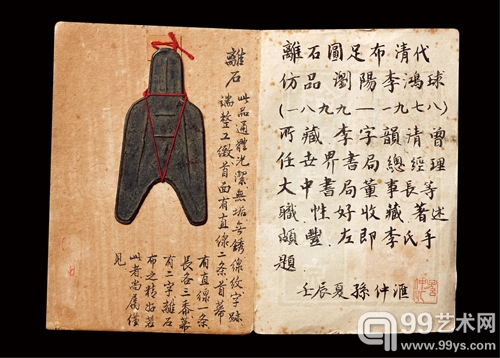 離石
此品通體光潔無垢無銹線紋字跡
端整工緻首面有直線二条首幕
有直線一条
有二字離石
布之精好若
此者尤属僅
見
離石圓足布清代
仿品瀏陽李鴻球
(一八九九—一九七八)
所藏李字韻清曾
任世界書局總經理
大中書局董事長等
職性好收藏著述
頗豐左即李氏手
題
壬辰夏孫仲滙
99艺术网
www.99ys.com